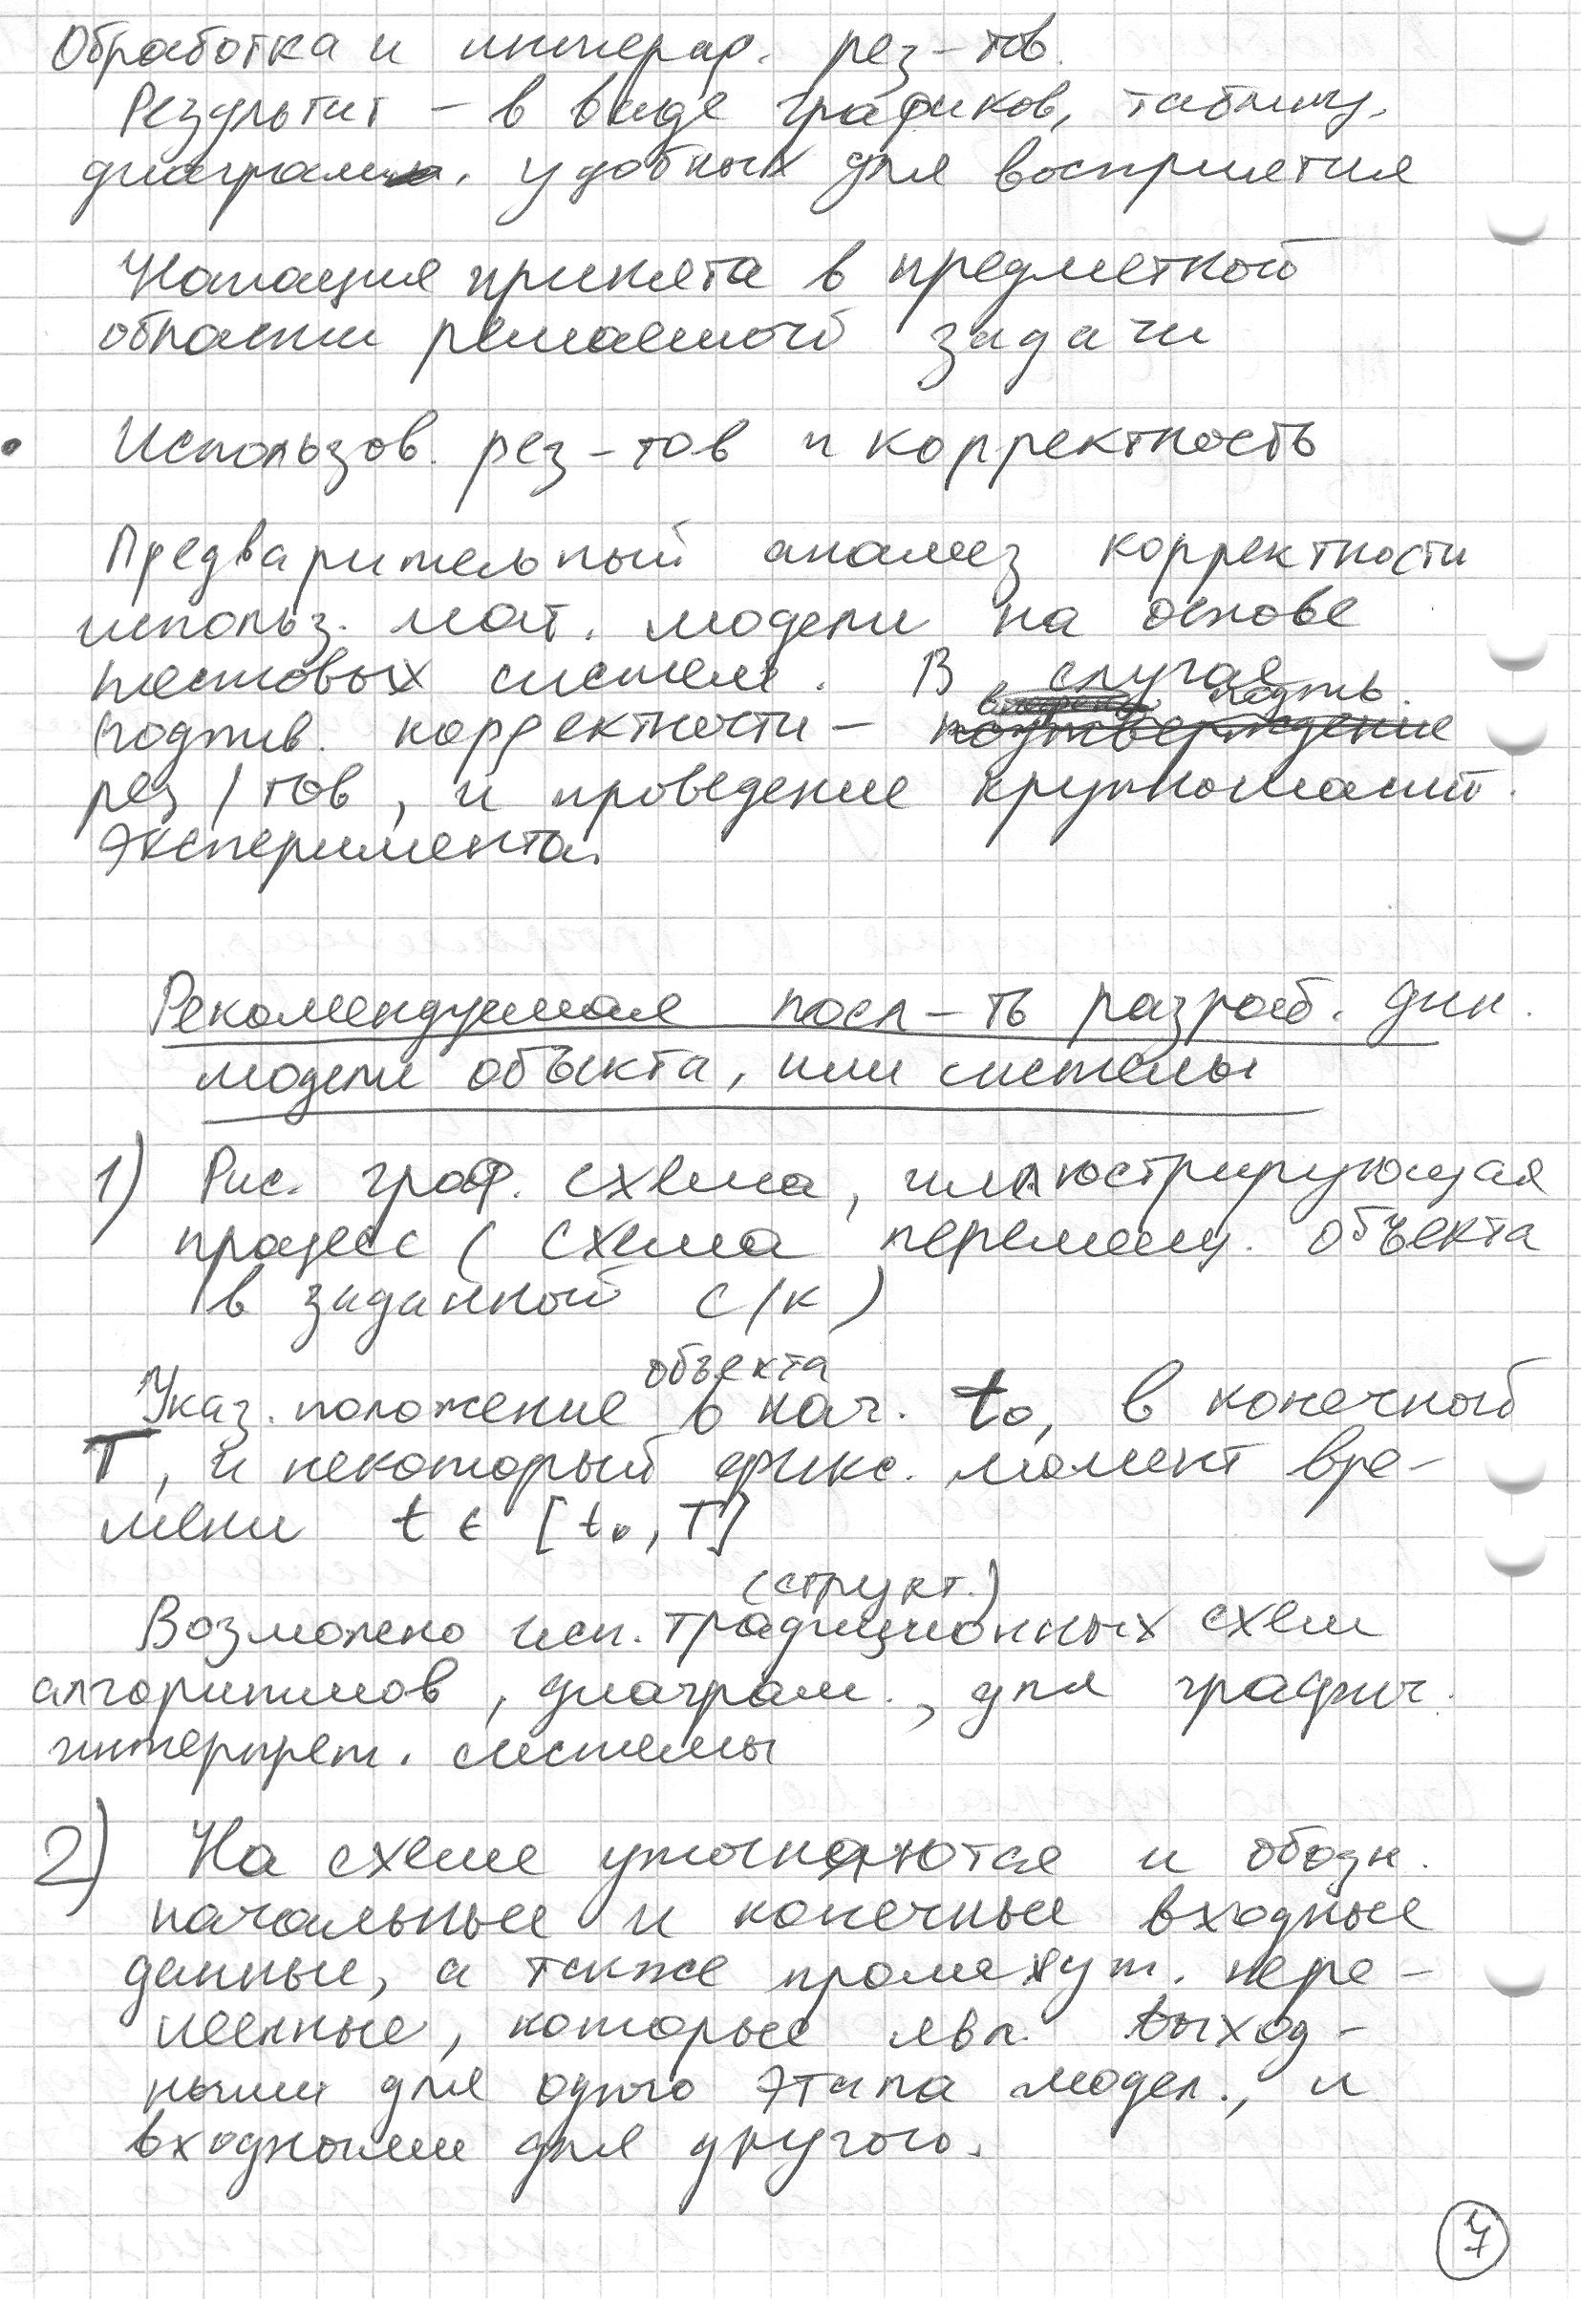 Обработка и интерпр. рез-тов.
Результат – в виде графиков, таблиц,
диаграмм. удобных для восприятия
Нотация принята в предметной
области решаемой задачи
• Использов. рез-тов и корректность
Предварительный анализ корректности
использ. мат. модели на основе
тестовых систем. В случае
подтв. корректности – подтв.
рез/тов, и проведение крупномасшт.
эксперимента.
Рекомендуемая посл-ть разраб. дин.
модели объекта, или системы
1) Рис. граф. схема, иллюстрирующая
процесс (схема перемещ. объекта
в заданной с/к)
Указ. положение объекта в нач. t₀, в конечный
T, и некоторый фикс. момент вре-
мени t ∈ [t₀, T]
Возможно исп. традиционных (структ.) схем
алгоритмов, диаграм., для графич.
интерпрет. системы
2) На схеме уточняются и обозн.
начальные и конечные входные
данные, а также промежут. пере-
менные, которые явл. выход-
ными для одного этапа модел., и
входными для другого.
7